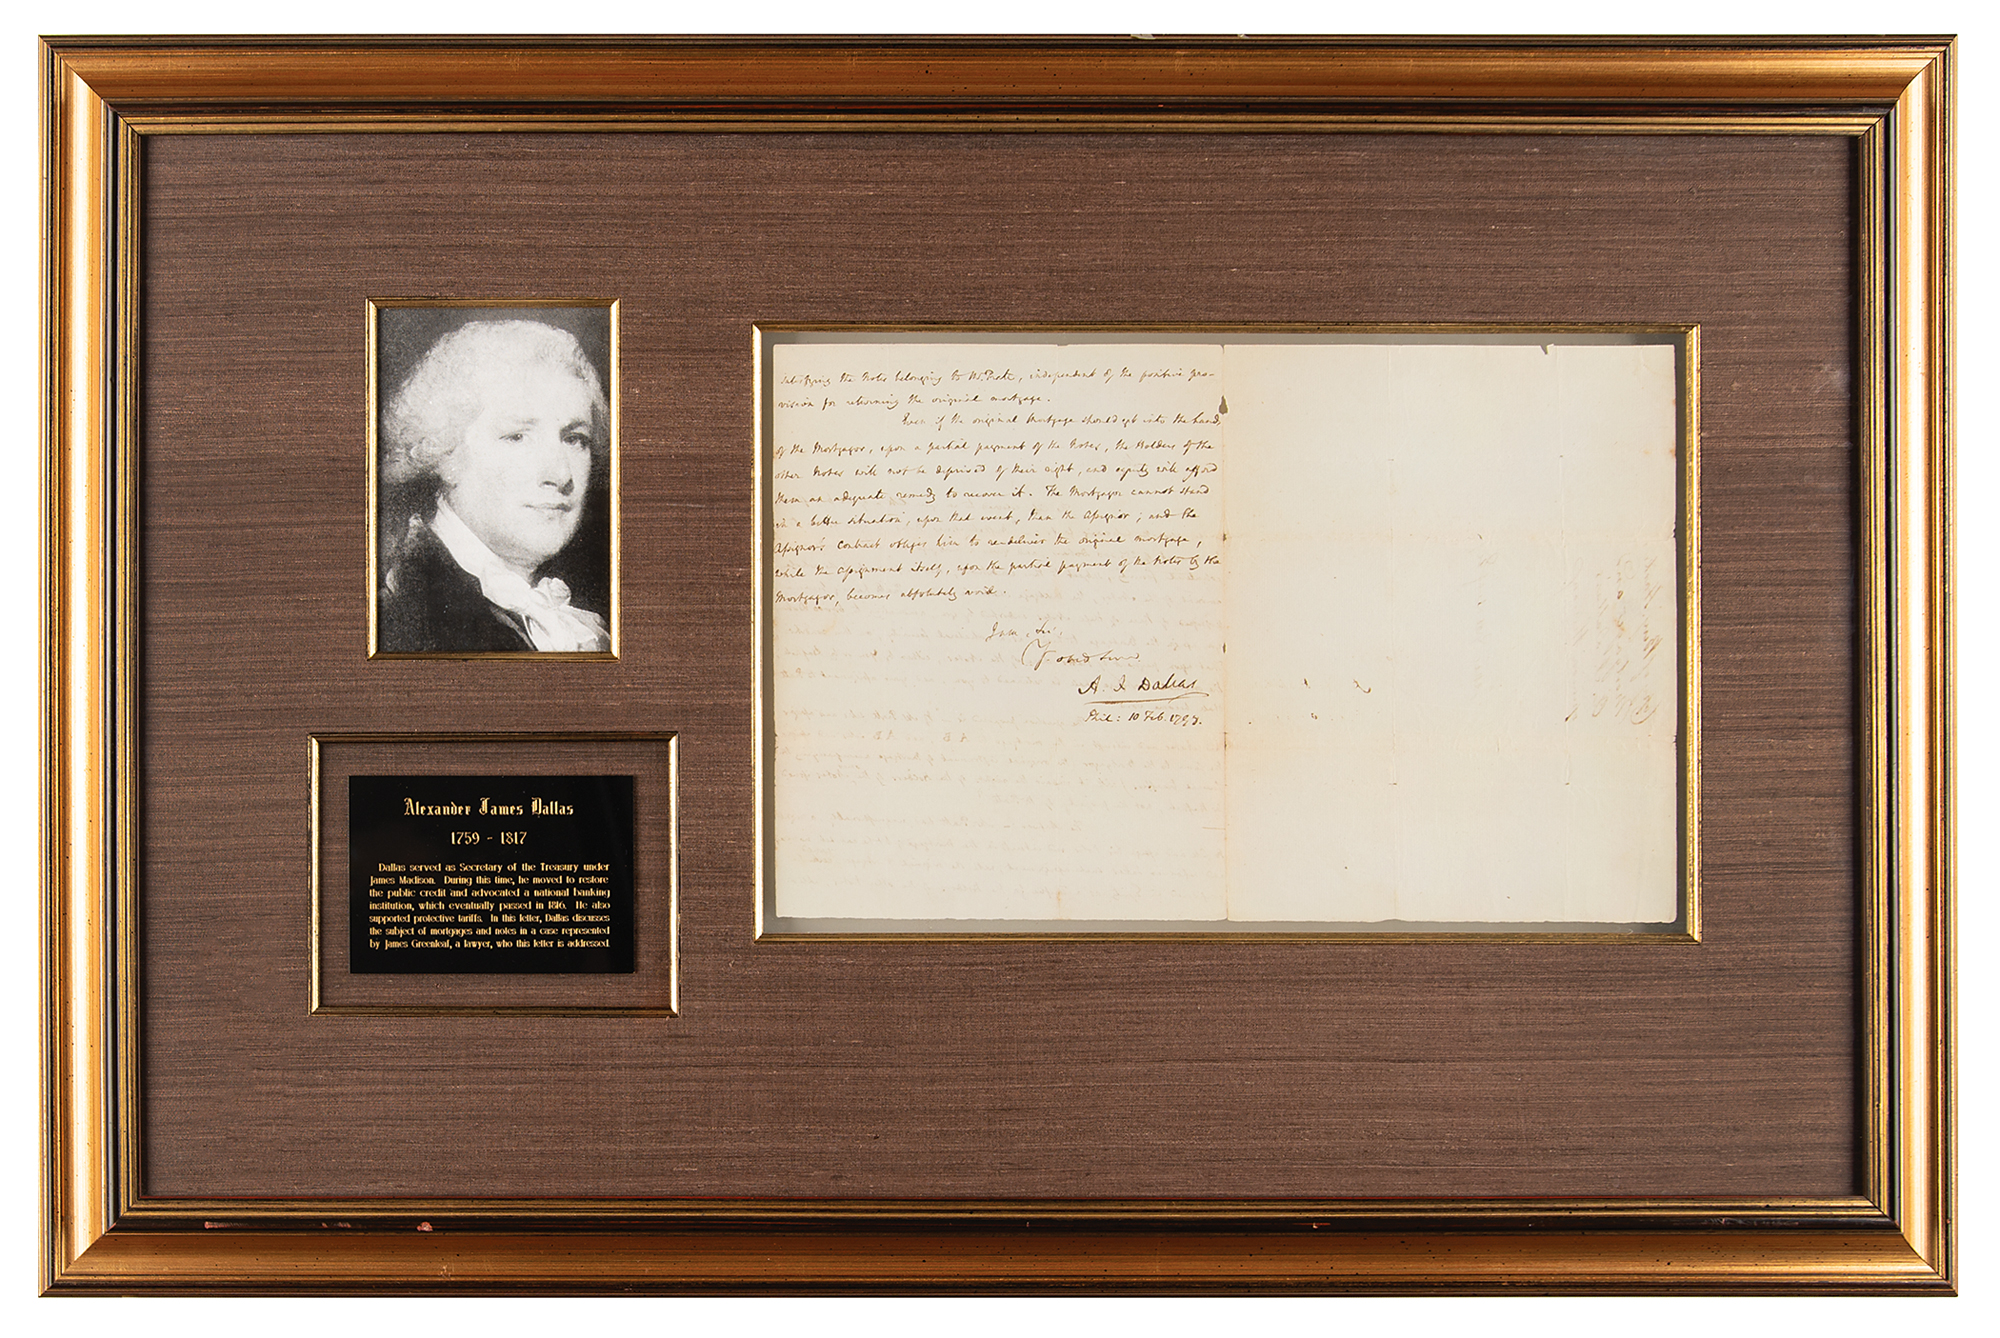 Alexander James Dallas
1759 - 1817
Dallas served as Secretary of the Treasury under
James Madison. During this time, he moved to restore
the public credit and advocated a national banking
institution, which eventually passed in 1816. He also
supported protective tariffs. In this letter, Dallas discusses
the subject of mortgages and notes in a case represented
by James Greenleaf, a lawyer, who this letter is addressed.
satisfying the Notes belonging to, independent of the positive pro-
vision for returning the original mortgage.
Even if the original Mortgage should get into the hands
of the Mortgagor, upon a partial payment of the Notes, the Holders of the
other Notes will not be deprived of their right, and equity will afford
them an adequate remedy to recover it. The Mortgagor cannot stand
in a better situation, upon that event, than the Assignor; and the
Assignor's contract obliges him to re-deliver the original mortgage,
while the assignment itself, upon the partial payment of the Notes by the
Mortgagor, becomes absolutely void.
I am, Sir,
A. J. Dallas
Phil: 10 Feb. 1797.